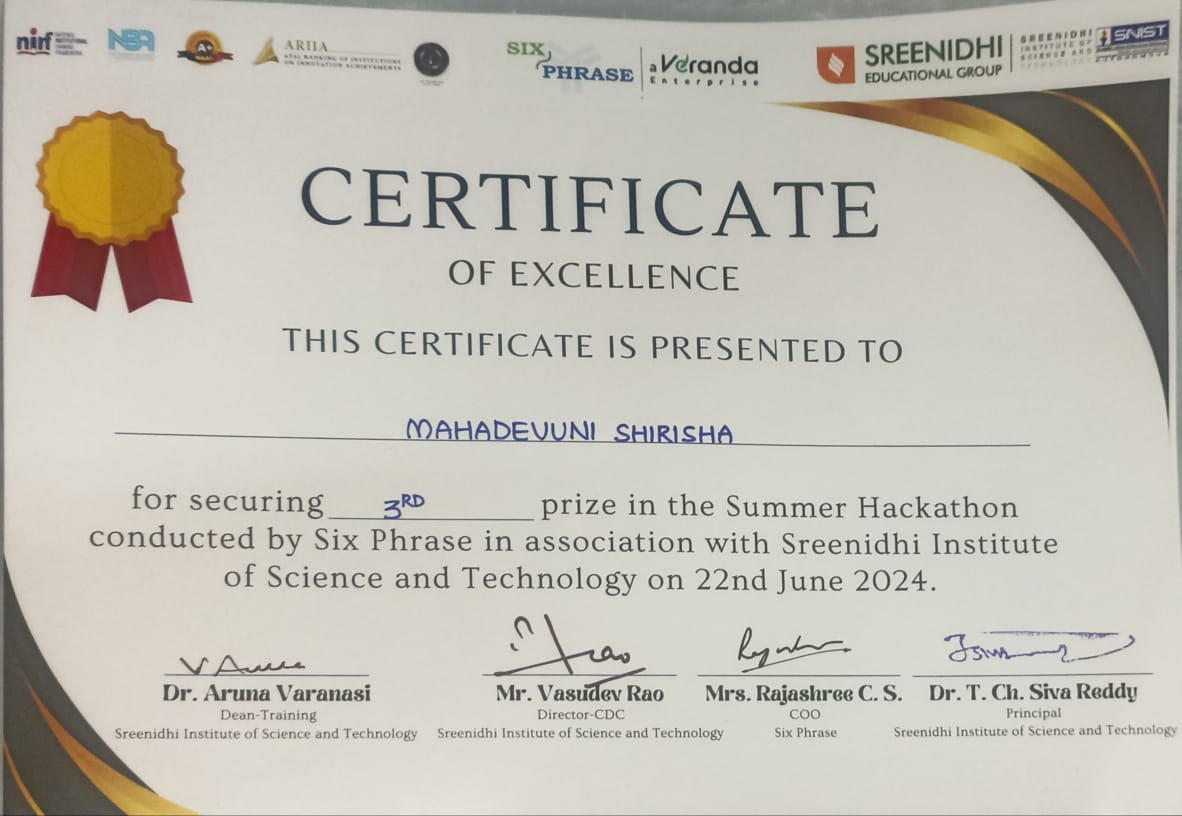 nirf
NBA
A+
NAAC
ARIIA
ATAL RANKING OF INSTITUTIONS
ON INNOVATION ACHIEVEMENTS
SIX
PHRASE
a Veranda
Enterprise
SREENIDHI
EDUCATIONAL GROUP
SREENIDHI
INSTITUTE OF
SCIENCE AND
TECHNOLOGY
SNIST
CERTIFICATE
OF EXCELLENCE
THIS CERTIFICATE IS PRESENTED TO
MAHADEVUNI SHIRISHA
for securing 3RD prize in the Summer Hackathon
conducted by Six Phrase in association with Sreenidhi Institute
of Science and Technology on 22nd June 2024.
Dr. Aruna Varanasi
Dean-Training
Sreenidhi Institute of Science and Technology
Mr. Vasudev Rao
Director-CDC
Sreenidhi Institute of Science and Technology
Mrs. Rajashree C. S.
COO
Six Phrase
Dr. T. Ch. Siva Reddy
Principal
Sreenidhi Institute of Science and Technology